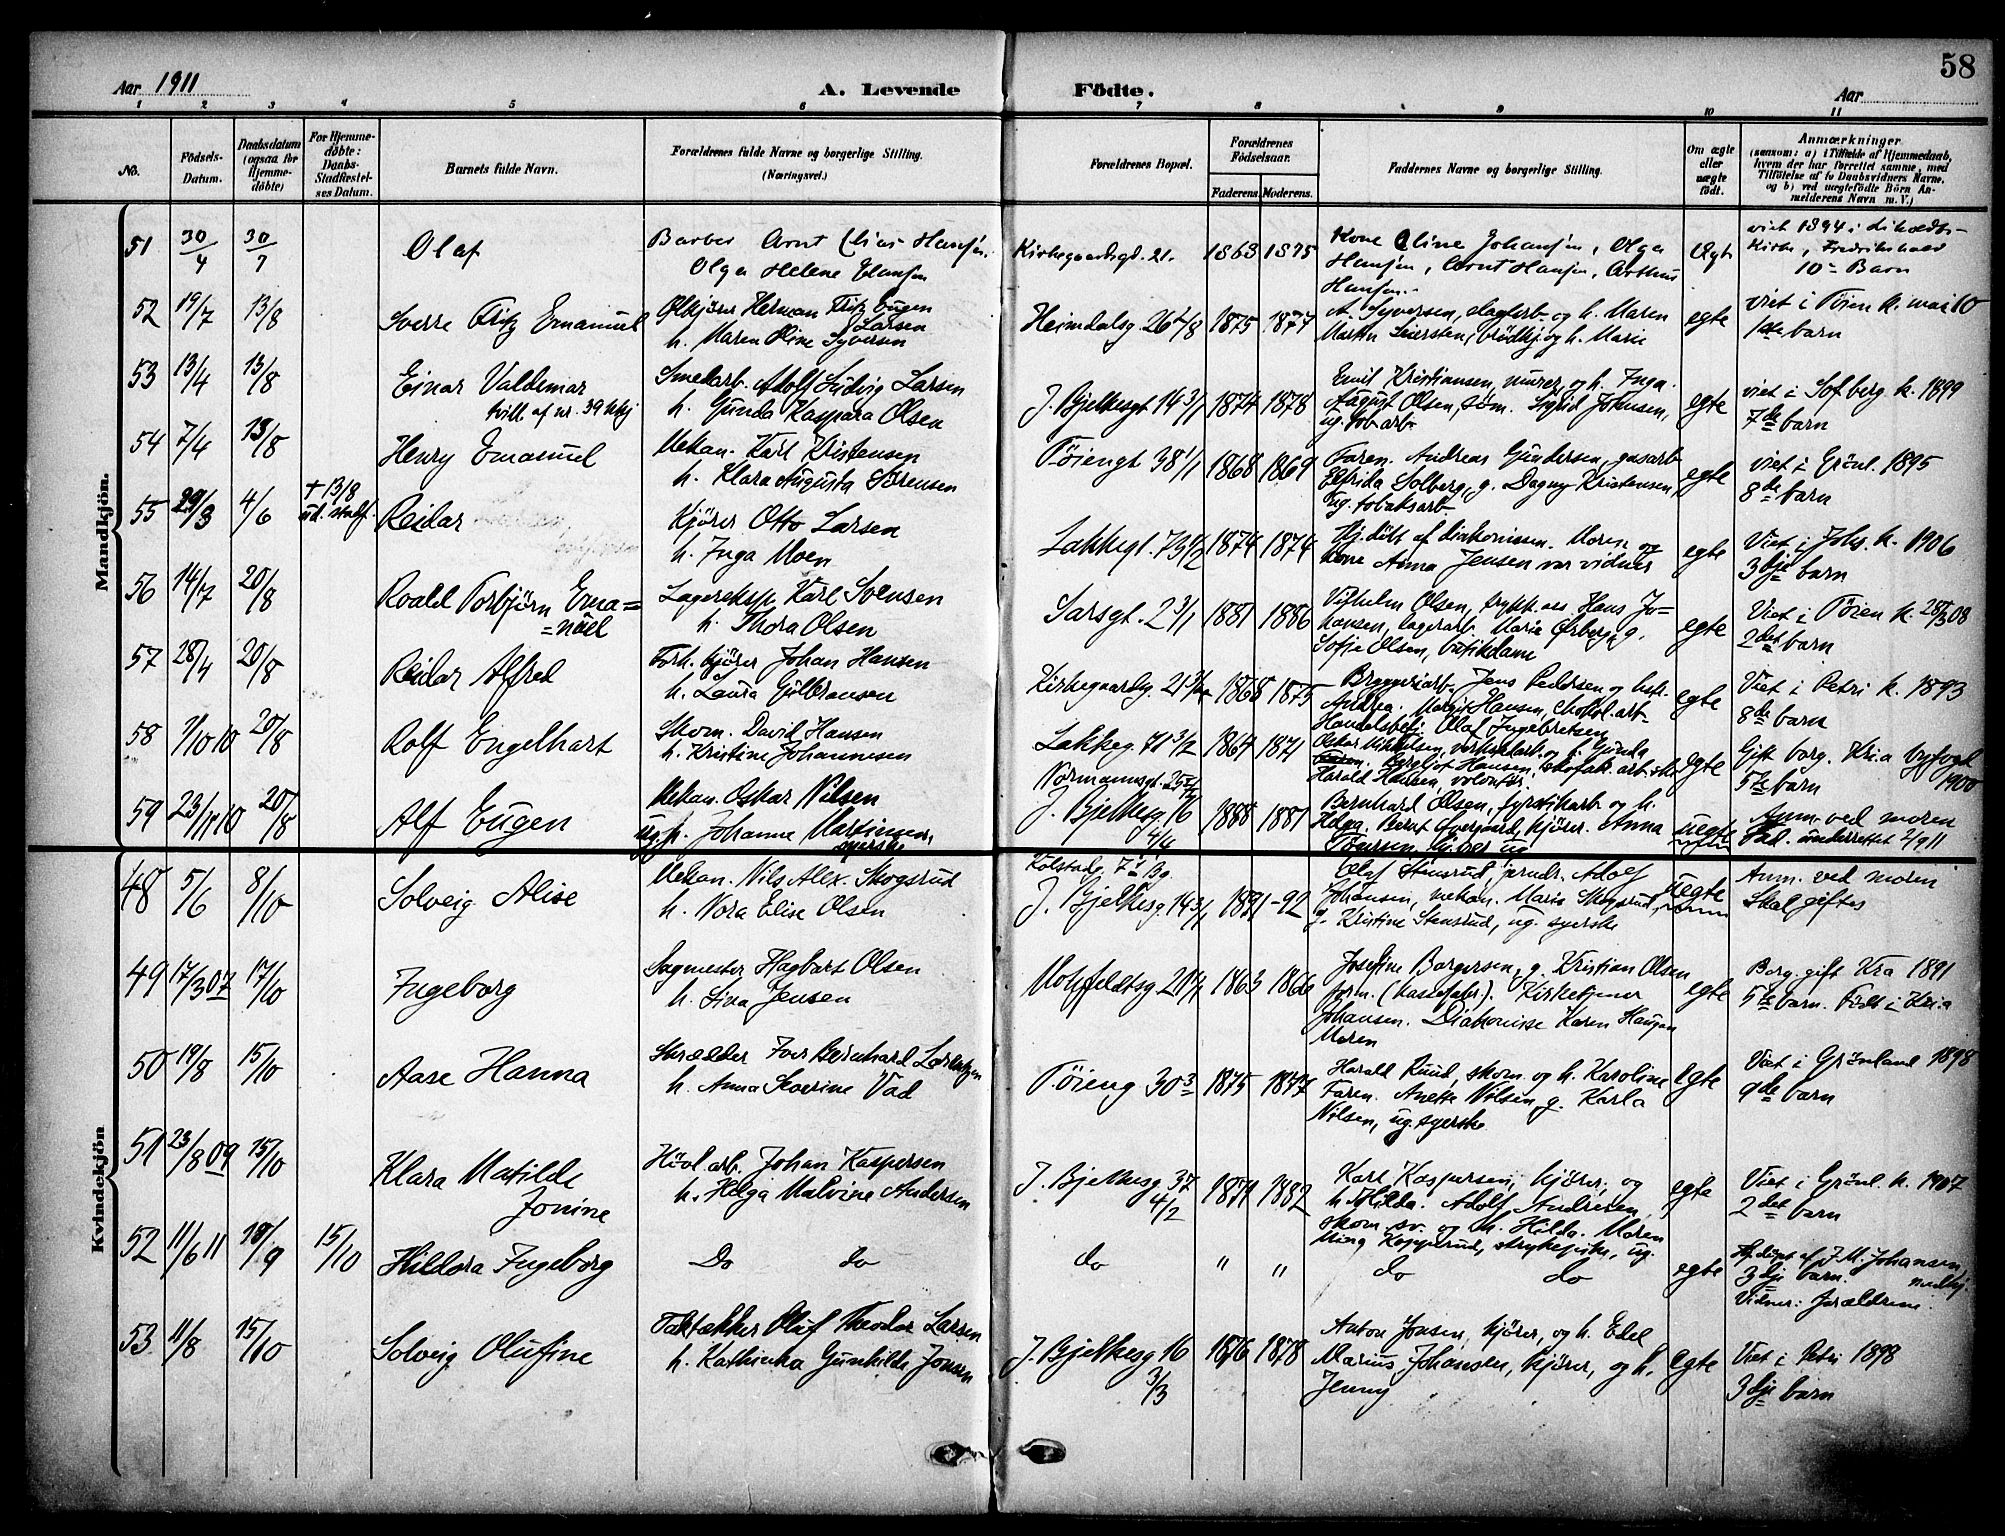 58
Aar 1911
A. Levende Födte.
Aar
1 2 3 4 5 6 7 8 9 10 11
No.
Födsels-Datum.
Daabsdatum (ogsaa for Hjemme-döbte)
For Hjemme-döbte: Daabs-Stadfæstel-ses Datum.
Barnets fulde Navn.
Forældrenes fulde Navne og borgerlige Stilling.
(Næringsvei.)
Forældrenes Bopæl.
Forældrenes Födselsaar.
Faderens. Moderens.
Faddernes Navne og borgerlige Stilling.
Om ægte eller uægte født.
Anmærkninger
(saasom: a) i Tilfælde af Hjemmedaab,
hvem der har forrettet samme, med
Tilföielse af to Daabsvidners Navne,
og b) ved uægtefödte Börn An-
melderens Navn m. V.)
Mandkjön.
51 30/4 30/7 Olaf
Barber Arnt Hansen.
Olga Helene Hansen
Kirkegaardsgd. 21. 1863 1875
Kone Oline Johansen, Olga
Hansen, Arnt Hansen, Arthur
Hansen.
Ægte
viet 1894 i
Kirke, Fredrikshald
10 = Barn
52 19/7 13/8 Sverre Fritz Emanuel
Ølkjører Herman Fritz Eugen
Larsen
h. Maren Oline Syversen
Heimdalsg 26 1875 1877
A. Syversen, dagarb. og h. Maren
Martin Seiersten, brødkj. og h. Marie
egte
viet i Tøien k. mai 10
1ste barn
53 13/4 13/8 Einar Valdemar
tvill. af nr. 39 kvkj
Smedarb. Adolf Ludvig Larsen
h. Gunda Kaspara Olsen
J. Bjelkesgt 14 3/1 1874 1878
Emil Kristiansen, murer, og h. Inga.
August Olsen, søm. Sigrid Johnsen,
ug. tob.arb.
egte
viet i Sofbberg k. 1899
7de barn
54 7/4 13/8 Henry Emanuel
Mekan. Karl Kristensen
h. Klara Augusta Sørensen
Tøiengt 38 1/1 1868 1869
Faren. Andreas Gundersen, gasarb.
Elfrida Solberg, g. Dagny Kristensen,
ug. tobaksarb.
egte
viet i Grønl. 1895
8de barn
55 29/3 4/6 + 13/8
ud. stadf. Reidar
Kjører Otto Larsen
h. Inga Moen
Lakkegt. 73 4/2 1874 1874
Hj.døbt af diakonissen. Moren og
kone Anna Jensen var vidner
egte
Viet i Johs. k. 1906
3dje barn
56 14/7 20/8 Roald Torbjørn Ema=
=nuel
Lagereksp. Karl Svensen
h. Thora Olsen
Sarsgt. 2 3/1 1881 1886
Vilhelm Olsen, trykk. ass. Hans Jo-
hansen, lagerarb. Marie Ørberg, g.
Sofje Olsen, butikdame
egte
Viet i Tøien k. 28/3 08
2det barn
57 28/4 20/8 Reidar Alfred
Forh. kjører Johan Hansen
h. Laura Gulbransen
Kirkegaardsg. 21 1868 1875
Bryggeriarb. Jens Pedersen og hstr.
Andrea. Margit Hansen, Chokol. arb.
Handelsbetj. Olaf Ingebretsen
egte
Viet i Petri k. 1893
8de barn
58 1/10 10 20/8 Rolf Engelhart
Skom. David Hansen
h. Kristine Johannesen
Lakkeg. 71 3/2 1864 1871
Oskar Mikkelsen, verkstedarb. og h. Gunda
Bergljot Hansen, skofabr. arb.ske
Harald Hansen, volontør.
egte
Gift borg. Kria byfogd
5te barn 1900
59 23/11 10 20/8 Alf Eugen
Mekan. Oskar Nilsen
ug. p. Johanne Martinsen,
syerske
Normannsgt. 25
J. Bjelkesg. 16
4/4 1888 1881
Bernhard Olsen, fyrstikarb. og h.
Helga. Bernt Overgaard, kjører. Anna
uegte
Anm. ved moren
Fad. underrettet 2/9 11
Kvindekjön
48 5/6 8/10 Solveig Alise
Mekan. Nils Alex. Skogsrud
h. Nora Elise Olsen
Kolstadg. 7 Bg.
J. Bjelkesg. 14 3/1 1891 -92
Olaf Stensrud, jerndr. Adolf
Johansen, mekan. Marie Skogsrud,
g. Kristine Stensrud, ug. syerske
uegte
Anm. ved moren
Skal giftes
49 17/3 07 17/10 Ingeborg
Sagmester Hagbart Olsen
h. Lina Jensen
Motzfeldtsg 21 1863 1866
Josefine Borgersen, g. Kristian Olsen
form. (kassefabr.). Kirketjener
Johansen. Diakonisse Karen Haugan
Moren
egte
Borg. gift Kra 1891
5te barn. Født i Kria
50 19/8 15/10 Aase Hanna
Skrædder Iver Bernhard Lorentzen
h. Anna Severine Vad
Tøieng 30 3 1875 1877
Harald Ruud, skom. og h. Karoline
Faren. Anette Nilsen g. Karla
Nilsen, ug. syerske
egte
Viet i Grønland 1898
9de barn
51 23/8 09 15/10 Klara Matilde
Jonine
Høvl.arb. Johan Kaspersen
h. Helga Malvine Andersen
J. Bjelkesg 37
4/2 1871 1882
Karl Kaspersen, kjører, og
h. Hilda. Adolf Andresen,
skom. sv. og h. Hilda. Moren
Mina Kopperud, strykepike, ug.
egte
Viet i Grønl. k. 1907
2det barn
52 11/6 11 18/9 15/10 Hildora Ingeborg
Do do
do " " do do
egte
Hj.døpt af J. M. Johansen,
3dje barn. nedkj.
Vidner: forældrene.
53 11/8 15/10 Solveig Olufine
Taktækker Oluf Theodor Larsen
h. Kathinka Gunhilde Jonsen
J. Bjelkesg 16
3/3 1876 1878
Anton Jonsen, kjører, og h. Edel
Marius Johansen, kjører, og h.
Jenny
egte
Viet i Petri 1898
3dje barn